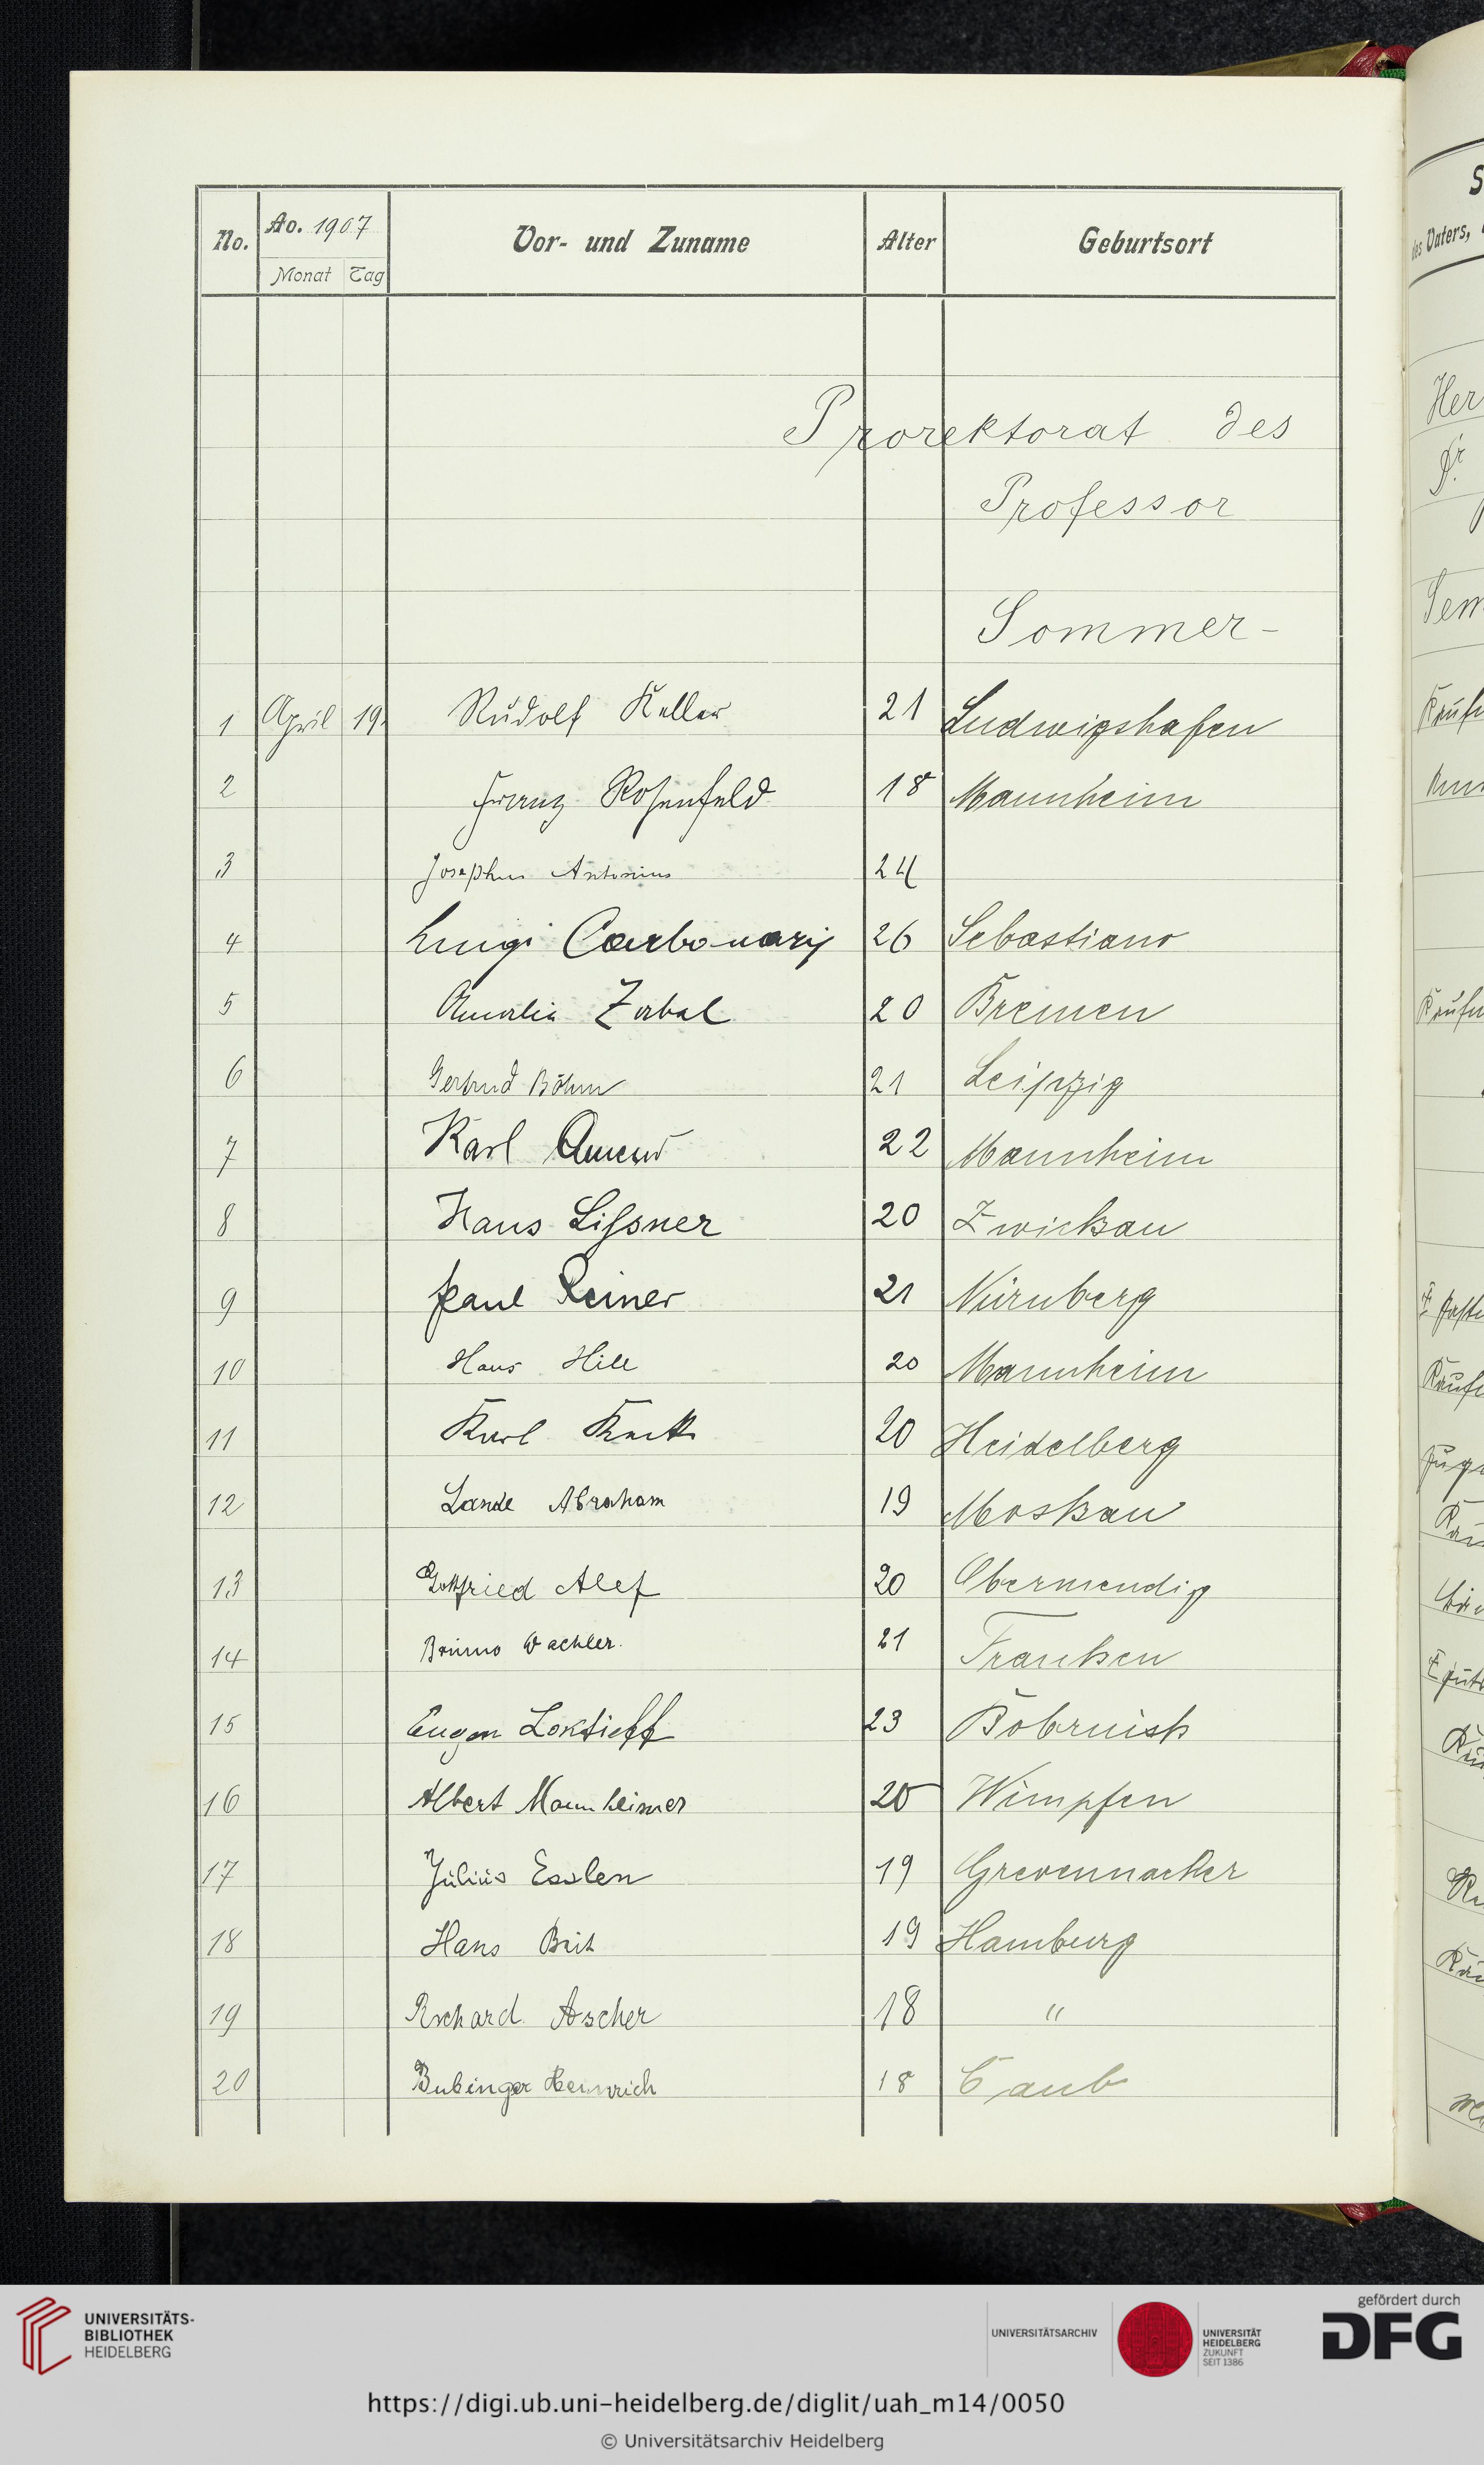 No. Ao. 1907 Monat Tag Vor- und Zuname Alter Geburtsort
Prorektorat des
Professor
Sommer-
1 April 19. Rudolf Keller 21 Ludwigshafen
2 Franz Rosenfeld 18 Mannheim
3 Josephus Antonius 24
4 Luigi Carbonarij 26 Sebastiano
5 Amalia Zabal 20 Bremen
6 Gertrud Böhm 21 Leipzig
7 Karl Amend 22 Mannheim
8 Hans Lissner 20 Zwickau
9 Paul Reiner 21 Nürnberg
10 Hans Hill 20 Mannheim
11 Karl 20 Heidelberg
12 Lande Abraham 19 Moskau
13 Gottfried Alef 20 Obermendig
14 Bruno Wachler. 21 Franken
15 Eugen Loktieff 23 Bobruisk
16 Albert Mannheimer 20 Wimpfen
17 Julius Esslen 19 Grevenmacher
18 Hans 19 Hamburg
19 Richard Ascher 18 "
20 Bubinger Heinrich 18 Caub
S
des Vaters,
UNIVERSITÄTS-
BIBLIOTHEK
HEIDELBERG
UNIVERSITÄTSARCHIV
UNIVERSITÄT
HEIDELBERG
ZUKUNFT
SEIT 1386
gefördert durch
DFG
https://digi.ub.uni-heidelberg.de/diglit/uah_m14/0050
© Universitätsarchiv Heidelberg